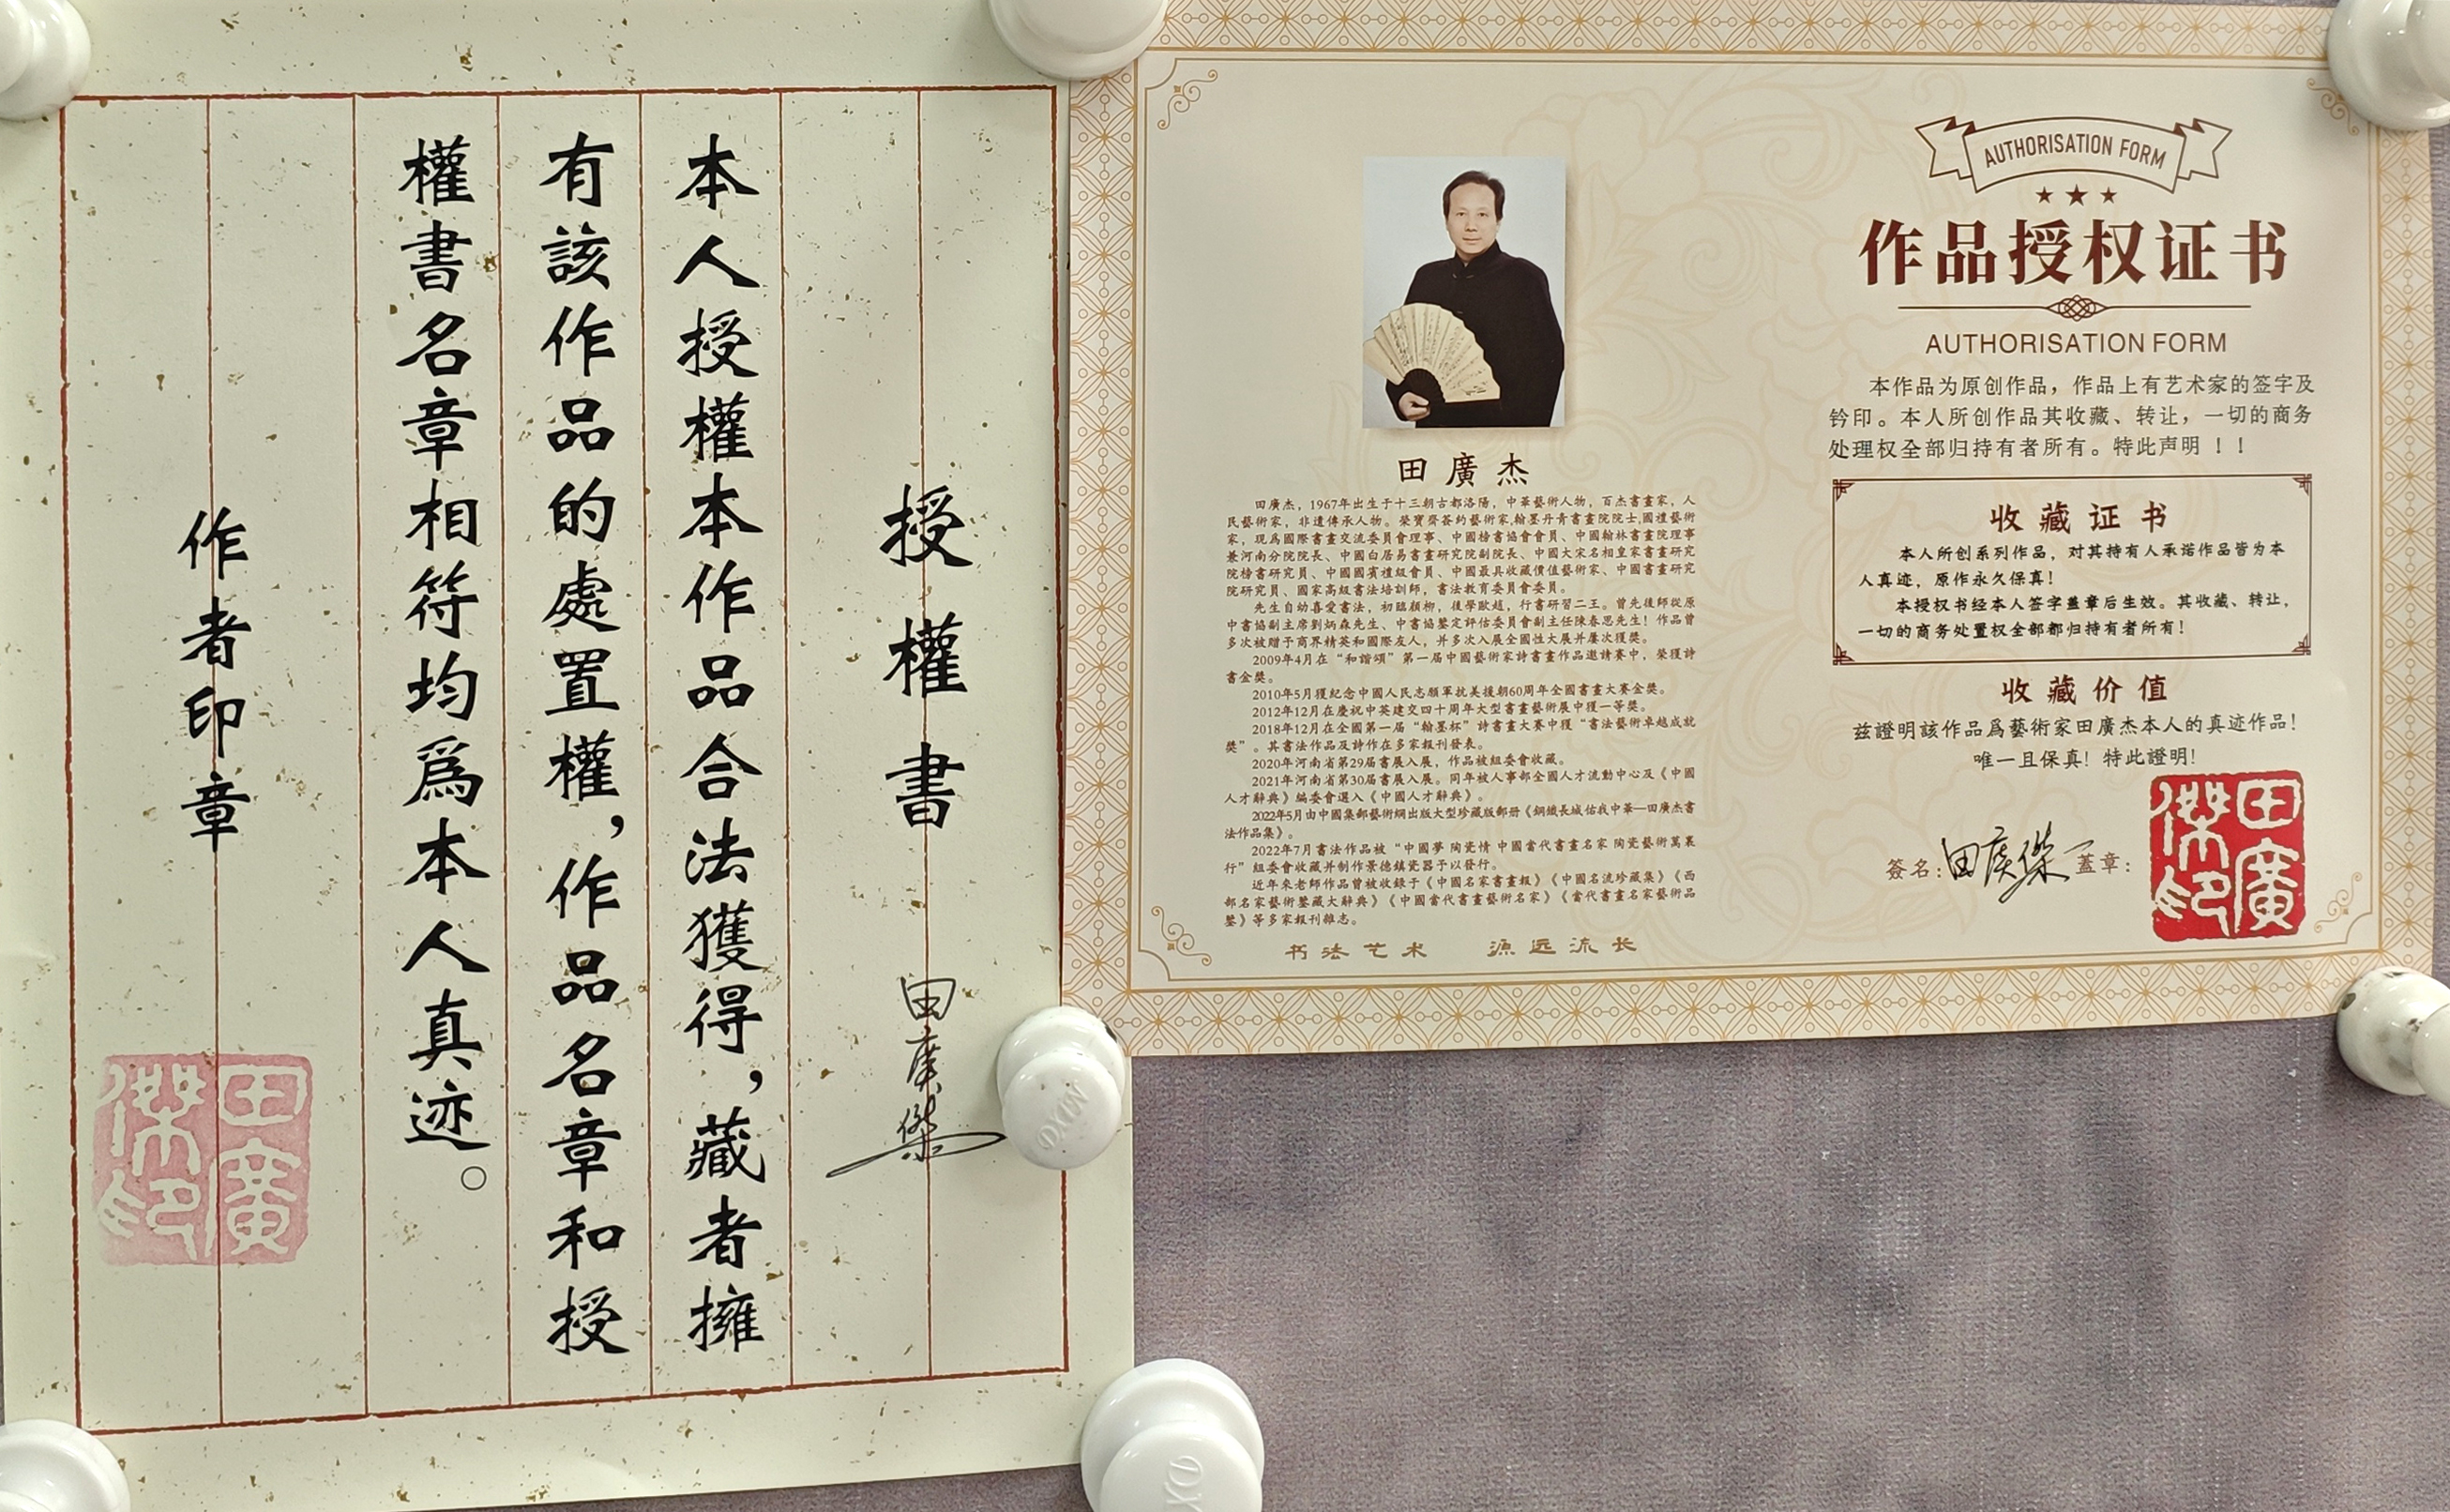 授權書 田廣傑
本人授權本作品合法獲得，藏者擁
有該作品的處置權，作品名章和授
權書名章相符均爲本人真迹。
作者印章
田廣傑印
田廣杰
田廣杰，1967年出生于十三朝古都洛陽，中華藝術人物，百杰書畫家，人
民藝術家，非遺傳承人物。榮寶齋簽約藝術家,翰墨丹青書畫院院士,國禮藝術
家，現爲國際書畫交流委員會理事、中國榜書協會會員、中國翰林書畫院理事
兼河南分院院長、中國白居易書畫研究院副院長、中國大宋名相皇家書畫研究
院榜書研究員、中國國賓禮級會員、中國最具收藏價值藝術家、中國書畫研究
院研究員、國家高級書法培訓師，書法教育委員會委員。
先生自幼喜愛書法，初臨顔柳，後學歐趙，行書研習二王。曾先後師從原
中書協副主席劉炳森先生、中書協鑒定評估委員會副主任陳春思先生！作品曾
多次被贈予商界精英和國際友人，并多次入展全國性大展并屢次獲獎。
2009年4月在“和諧頌”第一届中國藝術家詩書畫作品邀請賽中，榮獲詩
書金獎。
2010年5月獲紀念中國人民志願軍抗美援朝60周年全國書畫大賽金獎。
2012年12月在慶祝中英建交四十周年大型書畫藝術展中獲一等獎。
2018年12月在全國第一届“翰墨杯”詩書畫大賽中獲“書法藝術卓越成就
獎”。其書法作品及詩作在多家報刊發表。
2020年河南省第29届書展入展，作品被組委會收藏。
2021年河南省第30届書展入展。同年被人事部全國人才流動中心及《中國
人才辭典》編委會選入《中國人才辭典》。
2022年5月由中國集郵藝術網出版大型珍藏版郵册《鋼鐵長城佑我中華—田廣杰書
法作品集》。
2022年7月書法作品被“中國夢 陶瓷情 中國當代書畫名家 陶瓷藝術萬裏
行”組委會收藏并制作景德鎮瓷器予以發行。
近年來老師作品曾被收錄于《中國名家書畫報》《中國名流珍藏集》《西
部名家藝術鑒藏大辭典》《中國當代書畫藝術名家》《當代書畫名家藝術品
鑒》等多家報刊雜志。
书法艺术 源远流长
AUTHORISATION FORM
作品授权证书
AUTHORISATION FORM
本作品为原创作品，作品上有艺术家的签字及
钤印。本人所创作品其收藏、转让，一切的商务
处理权全部归持有者所有。特此声明！！
收藏证书
本人所创系列作品，对其持有人承诺作品皆为本
人真迹，原作永久保真！
本授权书经本人签字盖章后生效。其收藏、转让，
一切的商务处置权全部都归持有者所有！
收藏价值
兹證明該作品爲藝術家田廣杰本人的真迹作品！
唯一且保真！特此證明！
簽名：田廣傑 蓋章：
田廣傑印
DXIN
DX